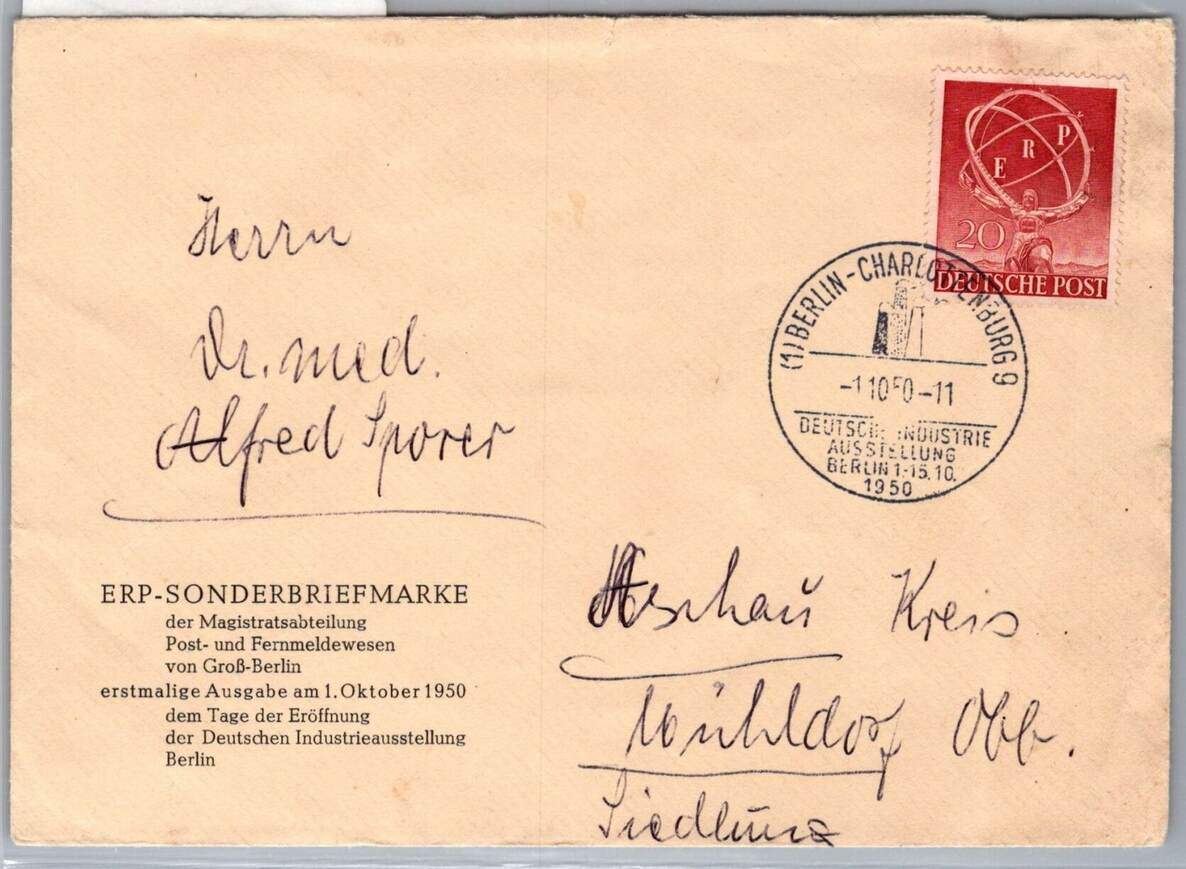 E R P
20
DEUTSCHE POST
(1) BERLIN-CHARLOTTENBURG 9
-1.10.50-11
DEUTSCHE INDUSTRIE
AUSSTELLUNG
BERLIN 1.-15.10.
1950
Herrn
Dr. med.
Alfred Sporer
ERP-SONDERBRIEFMARKE
der Magistratsabteilung
Post- und Fernmeldewesen
von Groß-Berlin
erstmalige Ausgabe am 1. Oktober 1950
dem Tage der Eröffnung
der Deutschen Industrieausstellung
Berlin
Aschau Kreis
Mühldorf Obb.
Siedlung